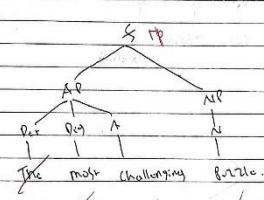 S NP
AP NP
Det Deg A N
The most challenging Puzzle.